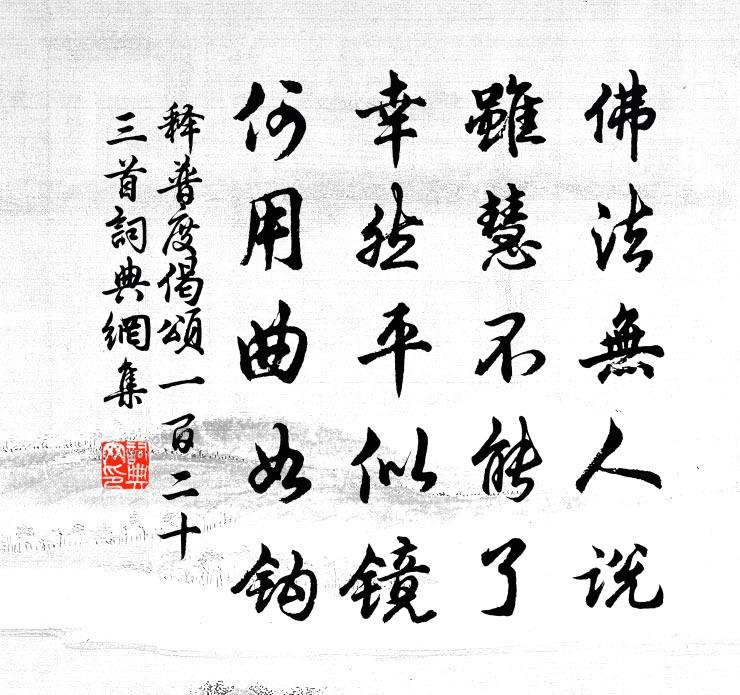 佛法無人說
雖慧不能了
幸然平似镜
何用曲如钩
释普度偈頌一百二十
三首詞典網集